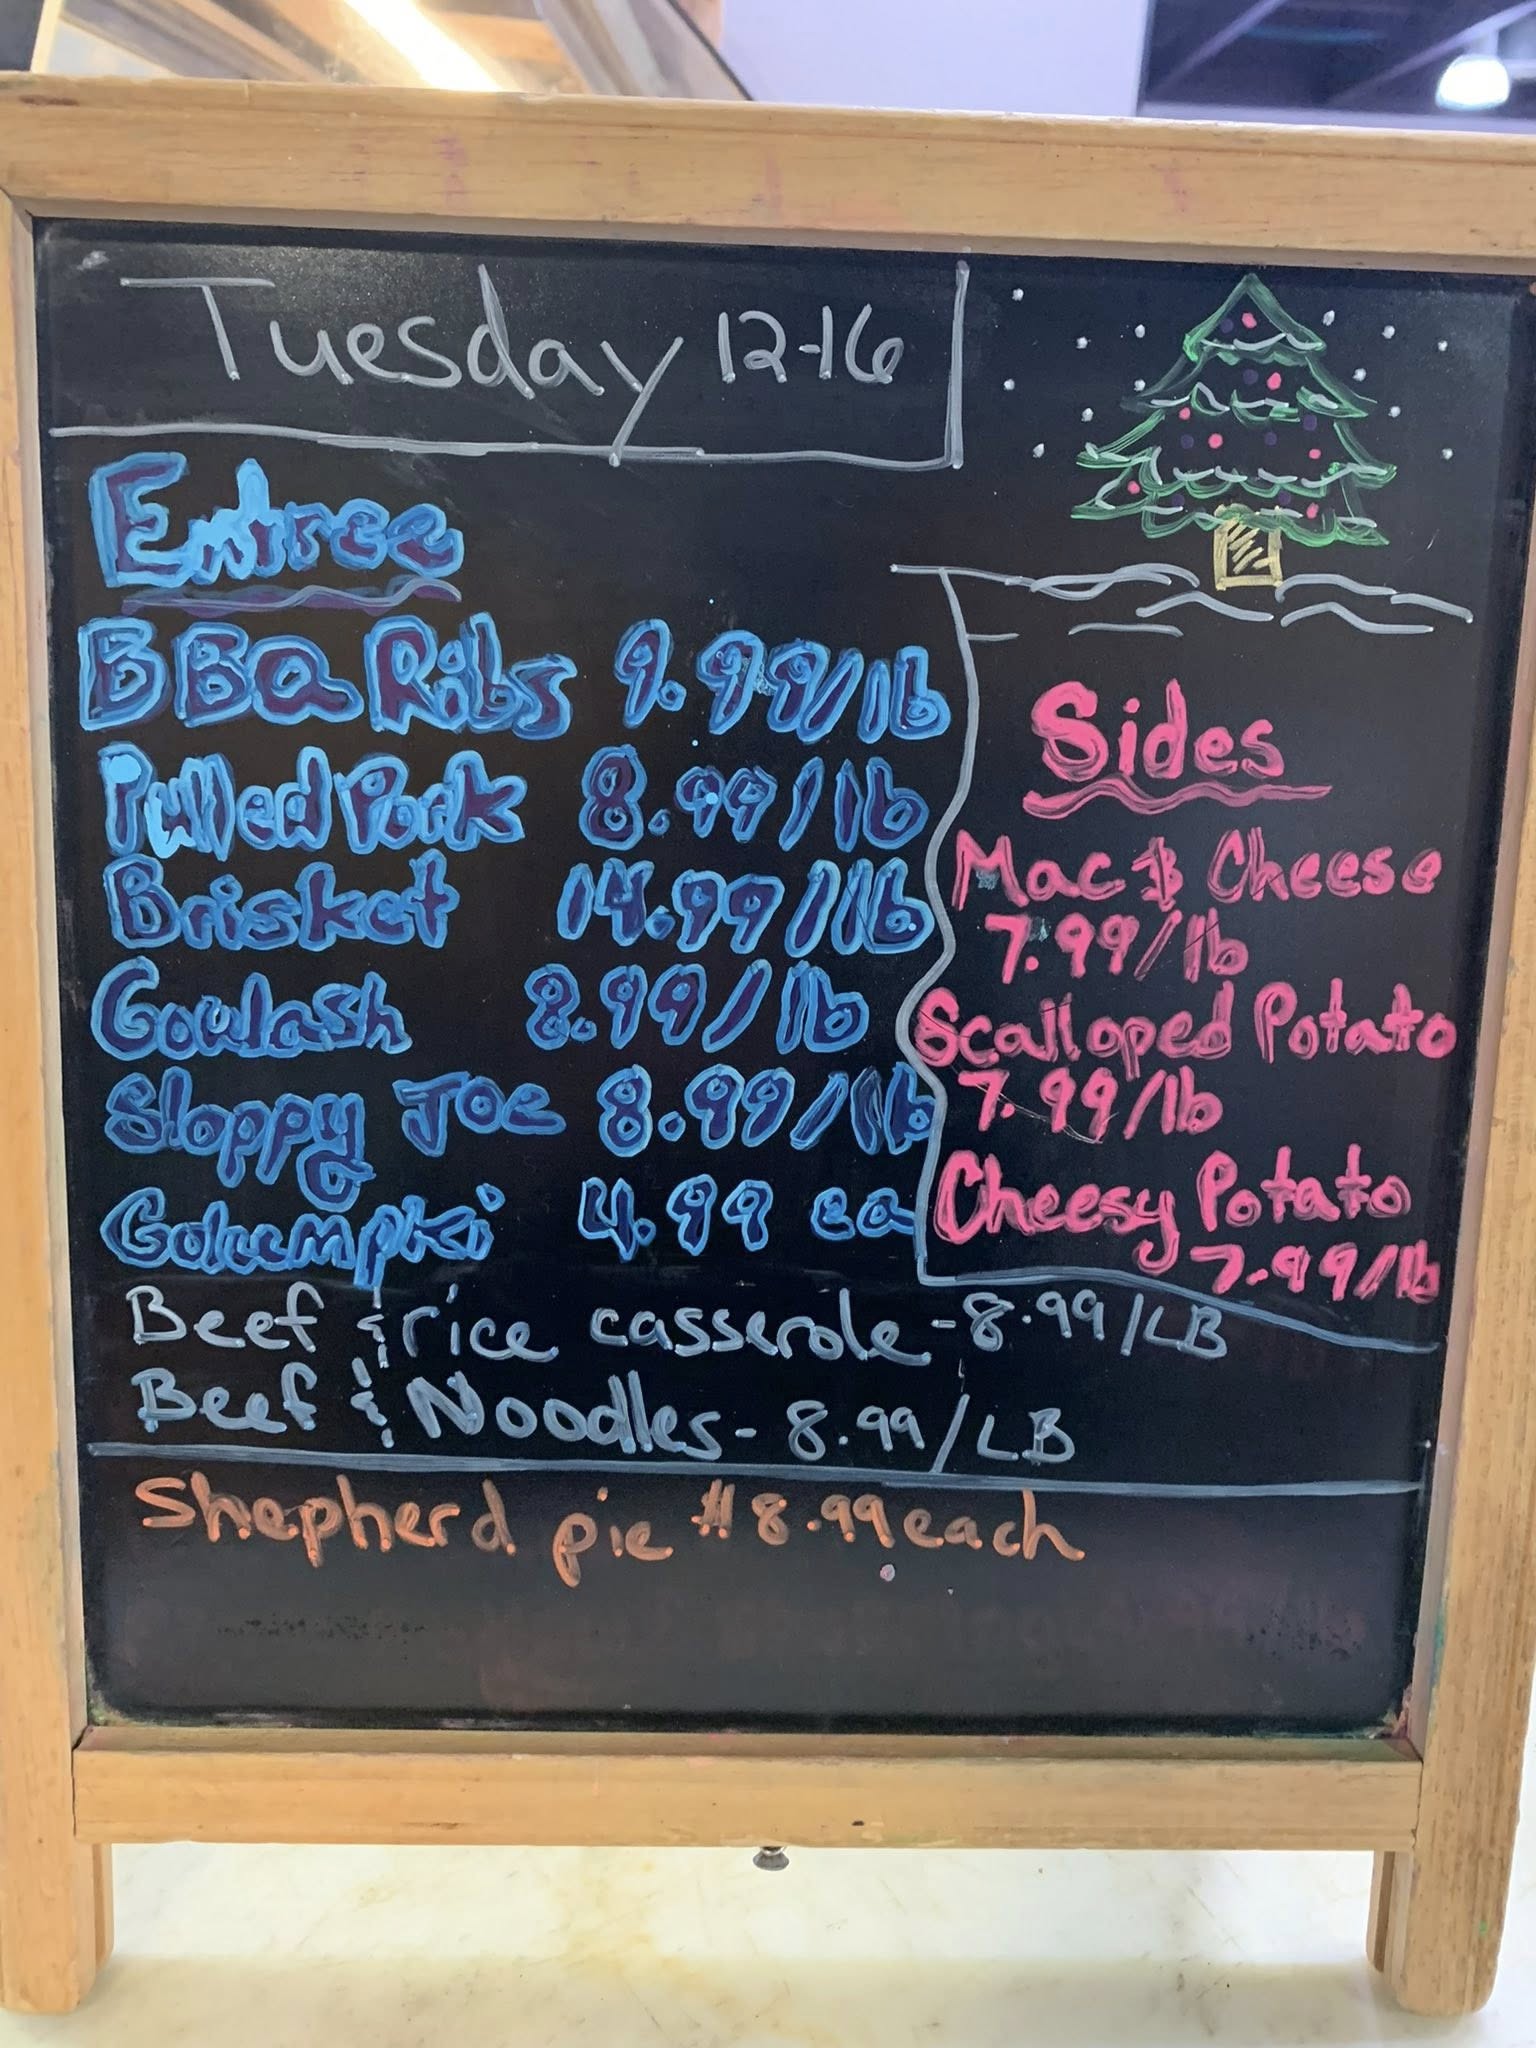 Tuesday 12-16
Entree
BBQ Ribs 9.99/lb
Pulled Pork 8.99/lb
Brisket 14.99/lb
Goulash 8.99/lb
Sloppy Joe 8.99/lb
Golumpki 4.99 ea
Beef & rice casserole - 8.99/LB
Beef & Noodles - 8.99/LB
Sides
Mac & Cheese
7.99/lb
Scalloped Potato
7.99/lb
Cheesy Potato
7.99/lb
Shepherd pie #8.99 each